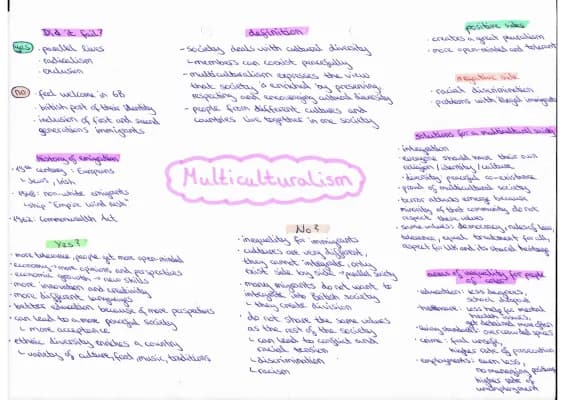 Did it fail?
yes
· parallel lives
· radicalism
· exclusion
no
· feel welcome in GB
· british part of their identity
· inclusion of first and second
generations immigrants
History of emigration
century: Europeans
Jews, Irish
1948: non-white emigrants
ship "Empire Wind rush"
1962: Commonwealth Act
Yes?
· more tolerance, people get more open-minded
· economy → more opinions and perspectives
· economic growth → new skills
· more innovation and creativity
· more different languages
· better education because of more perspectives
· can lead to a more peaceful society
more acceptance
· ethnic diversity enriches a country
variety of culture, food, music, traditions
definition
- society deals with cultural diversity
members can coexist peacefully
- multiculturalism expresses the view
that society is enriched by preserving,
respecting and encouraging cultural diversity
- people from different cultures and
countries live together in one society
Multiculturalism
No?
· inequality for immigrants
· cultures are very different,
they cannot integrate, only
exist side by side → parallel society
· many migrants do not want to
integrate into British society
they create division
· do not share the same values
as the rest of the society
can lead to conflict and
racial tension
discrimination
racism
positive sides
· creates a great pluralism
· more open-minded and tolerant
negative side
· racial discrimination
· problems with illegal immigrants
solutions for a multicultural society
· integration
· everyone should have their own
religion / identity / culture
· diversity, peaceful co-existence
· proud of multicultural society
· terror attacks emerge because
minority of that community do not
respect their values
· same values: democracy, rules of law,
tolerance, equal treatment for all,
respect for UK and its shared heritage
areas of inequality for people
of color
· education: less teachers,
school dropout
· healthcare: less help for mental
health issues,
get detained more often
· living standard: overcrowded spaces
· crime: higher rate of prosecution
· employments: earn less,
no managing positions,
higher rate of
unemployment